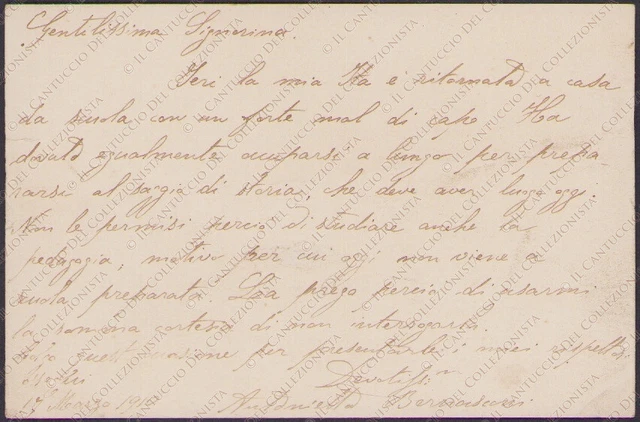 Gentilissima Signorina.
Ieri la mia è ritornata a casa
da scuola con un forte mal di capo Ha
dovuto egualmente occuparsi a lungo per prepa-
rarsi al saggio di storia, che deve aver luogo oggi.
Non le permisi perciò di studiare anche la
pedagogia, motivo per cui oggi non viene a
scuola preparata. La prego perciò di usarmi
la somma cortesia di non interrogarla.
quest'occasione per presentarle i miei rispettosi
Devotiss:
17 Marzo 1910 Bernasconi
© IL CANTUCCIO DEL COLLEZIONISTA